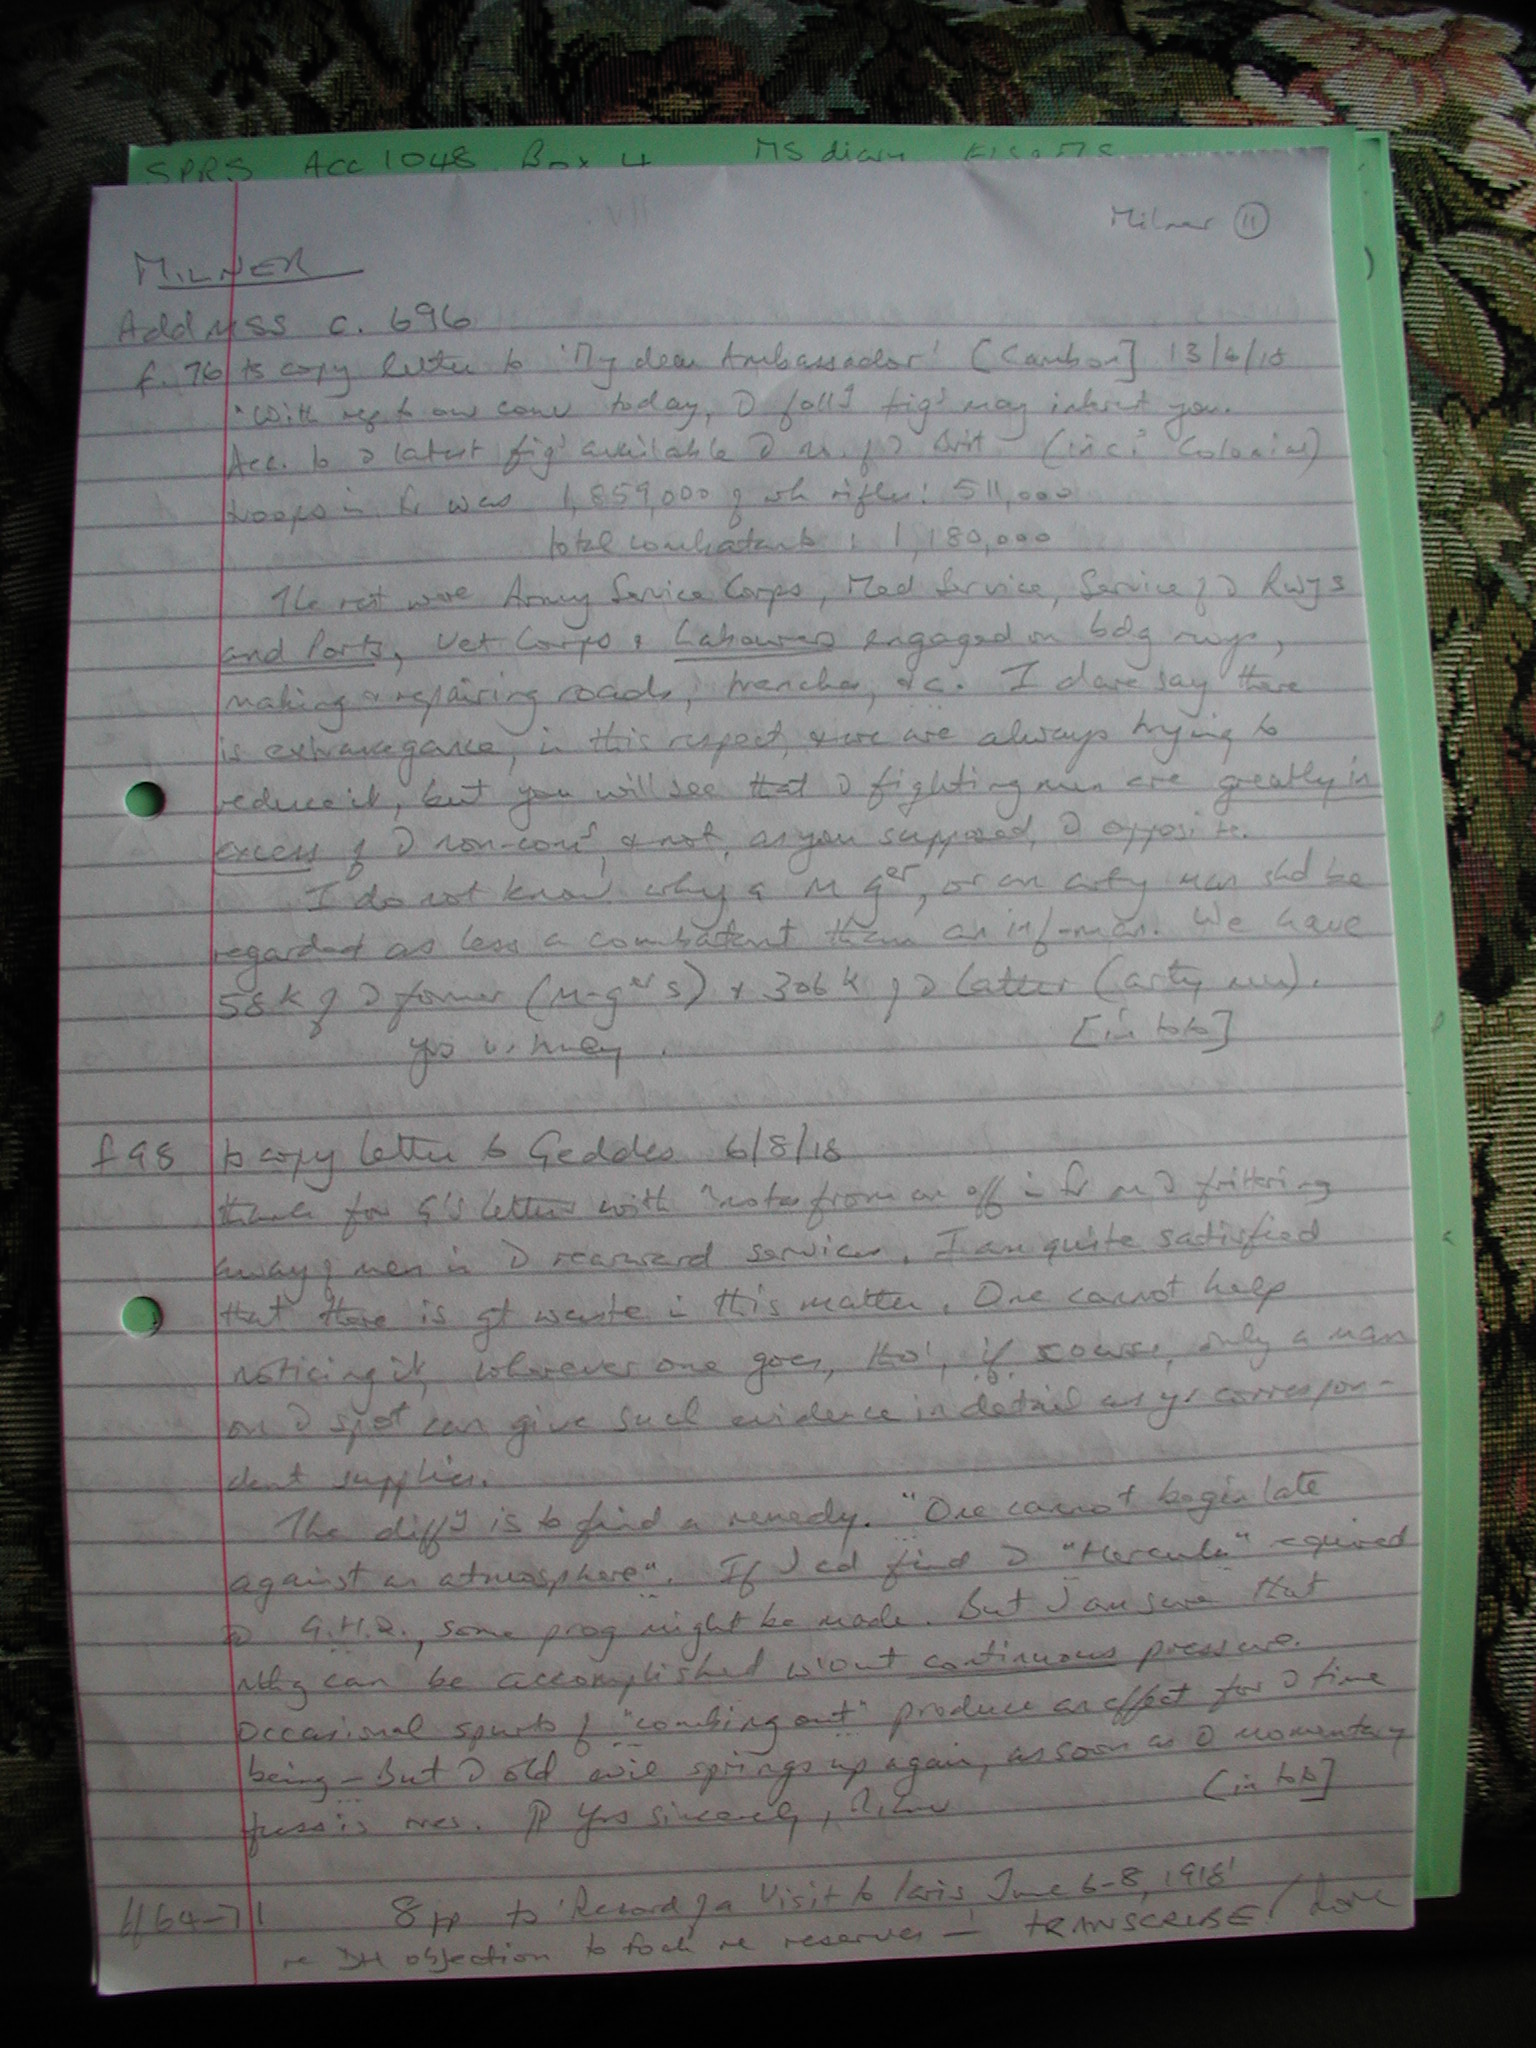 SPRS Acc 1048 Box 4 MS diary
Milner 11
MILNER
Add MSS c. 696
f. 76 ts copy letter to 'My dear Ambassador' [Cambon] 13/6/18
"With to our conv today, Ɔ foll^g fig^s may interest you.
Acc. to Ɔ latest fig^s available Ɔ no. of Ɔ Brit (inc^g Colonial)
troops in Fr was 1,859,000 of wh rifles: 511,000
total combatants : 1,180,000
The rest were Army Service Corps, Med Service, Service of Ɔ Rwys
and Ports, Vet Corps & Labourers engaged on bdg rwys,
making & repairing roads, trenches, &c. I dare say there
is extravagance, in this respect, & we are always trying to
reduce it, but you will see that Ɔ fighting men are greatly in
excess of Ɔ non-com^s, & not, as you supposed, Ɔ opposite.
I do not know why a M G^er, or an arty man shd be
regarded as less a combatant than an inf-man. We have
58k of Ɔ former (M-g^ers) & 306k of Ɔ latter (arty men).
yrs v. truly. [in toto]
f 98 ts copy letter to Geddes 6/8/18
thanks for G's letter with "notes from an off in Fr re Ɔ frittering
away of men in Ɔ rearward services. I am quite satisfied
that there is gt waste in this matter. One cannot help
noticing it, wherever one goes, tho', of course, only a man
on Ɔ spot can give such evidence in detail as yr correspon-
dent supplies.
The diff^y is to find a remedy. "One cannot legislate
against an atmosphere". If I cd find Ɔ "Hercules" required
G.H.Q., some prog might be made. But I am sure that
nthg can be accomplished w'out continuous pressure.
Occasional spurts of "combing out" produce an effect for Ɔ time
being – But Ɔ old evil springs up again, as soon as Ɔ momentary
fuss is over. Yrs sincerely, [in toto]
ff 64-71 8 pp ts 'Record of a Visit to Paris, June 6-8, 1918'
re DH objection to Foch re reserves – TRANSCRIBE!